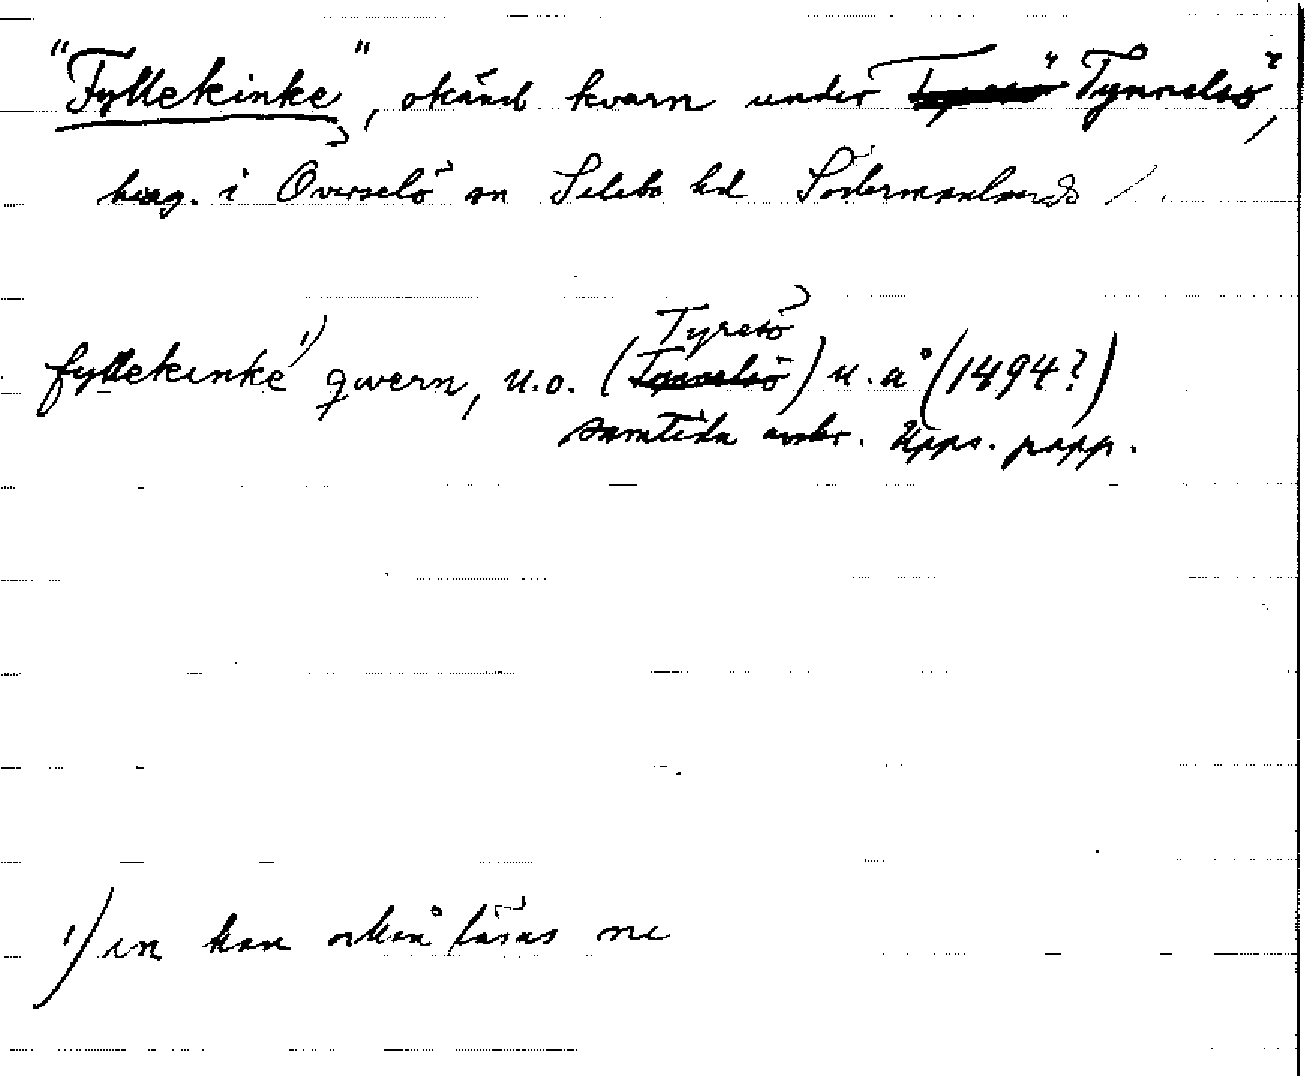 "Fyllekinke", okänd kvarn under Tynnelsö,
herg. i Överselö sn Selebo hd Södermanlands
fyllekinke 1) qwern, u.o. (Tyresö) u.å (1494?)
samtida avskr. Upps. papp.
1) in kan också läsas ni